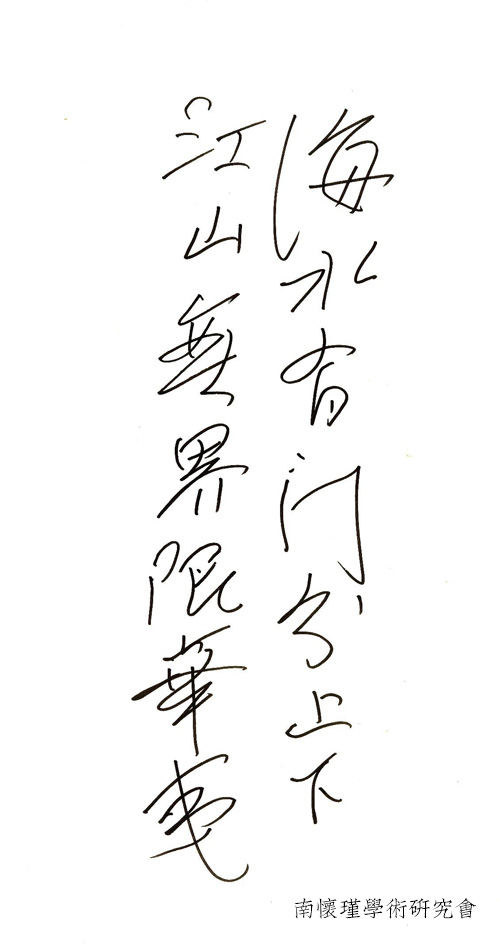 海水有门分上下
江山無界限華夷
南懷瑾學術研究會